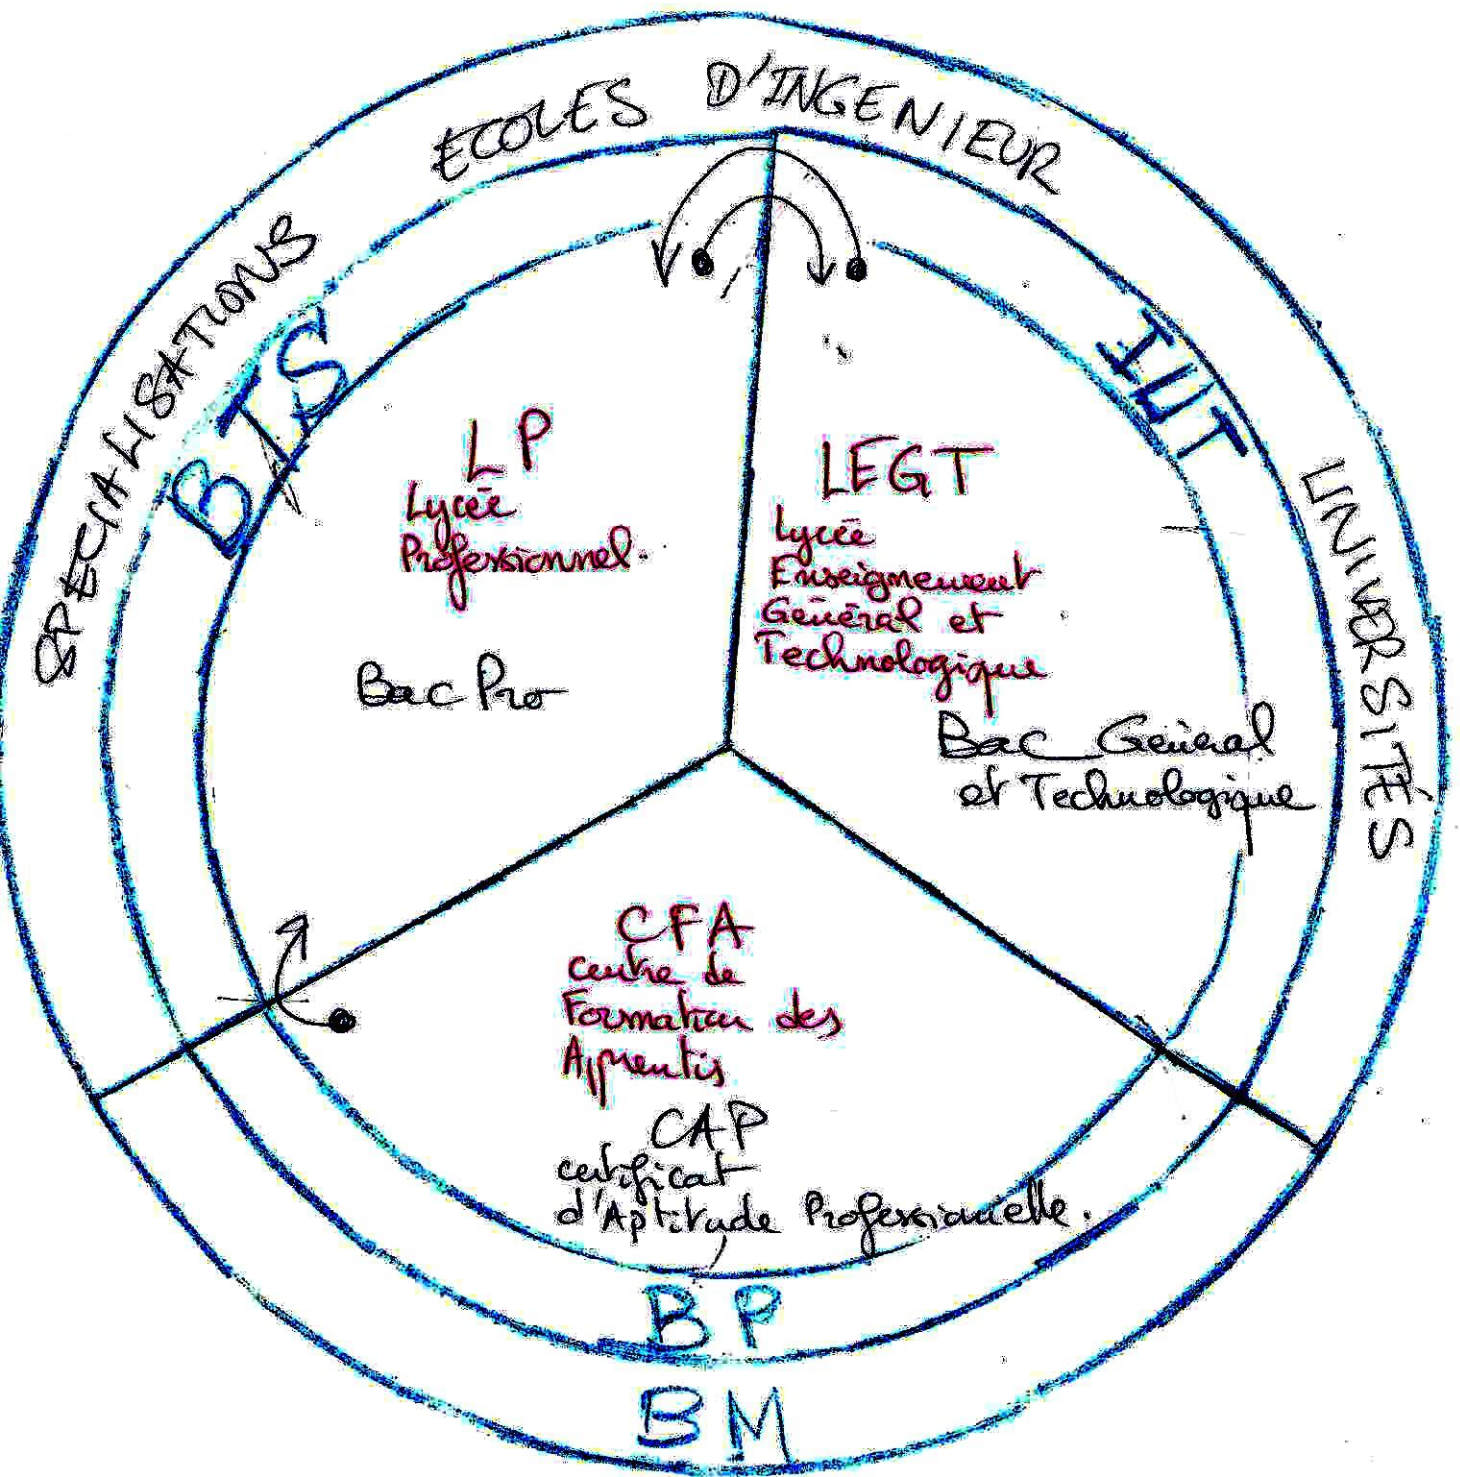 ECOLES D'INGENIEUR
SPECIALISATIONS
UNIVERSITÉS
BTS
IUT
LP
Lycée
Professionnel.
Bac Pro
LEGT
Lycée
Enseignement
Général et
Technologique
Bac Général
et Technologique
CFA
Centre de
Formation des
Apprentis
CAP
certificat
d'Aptitude Professionnelle.
BP
BM